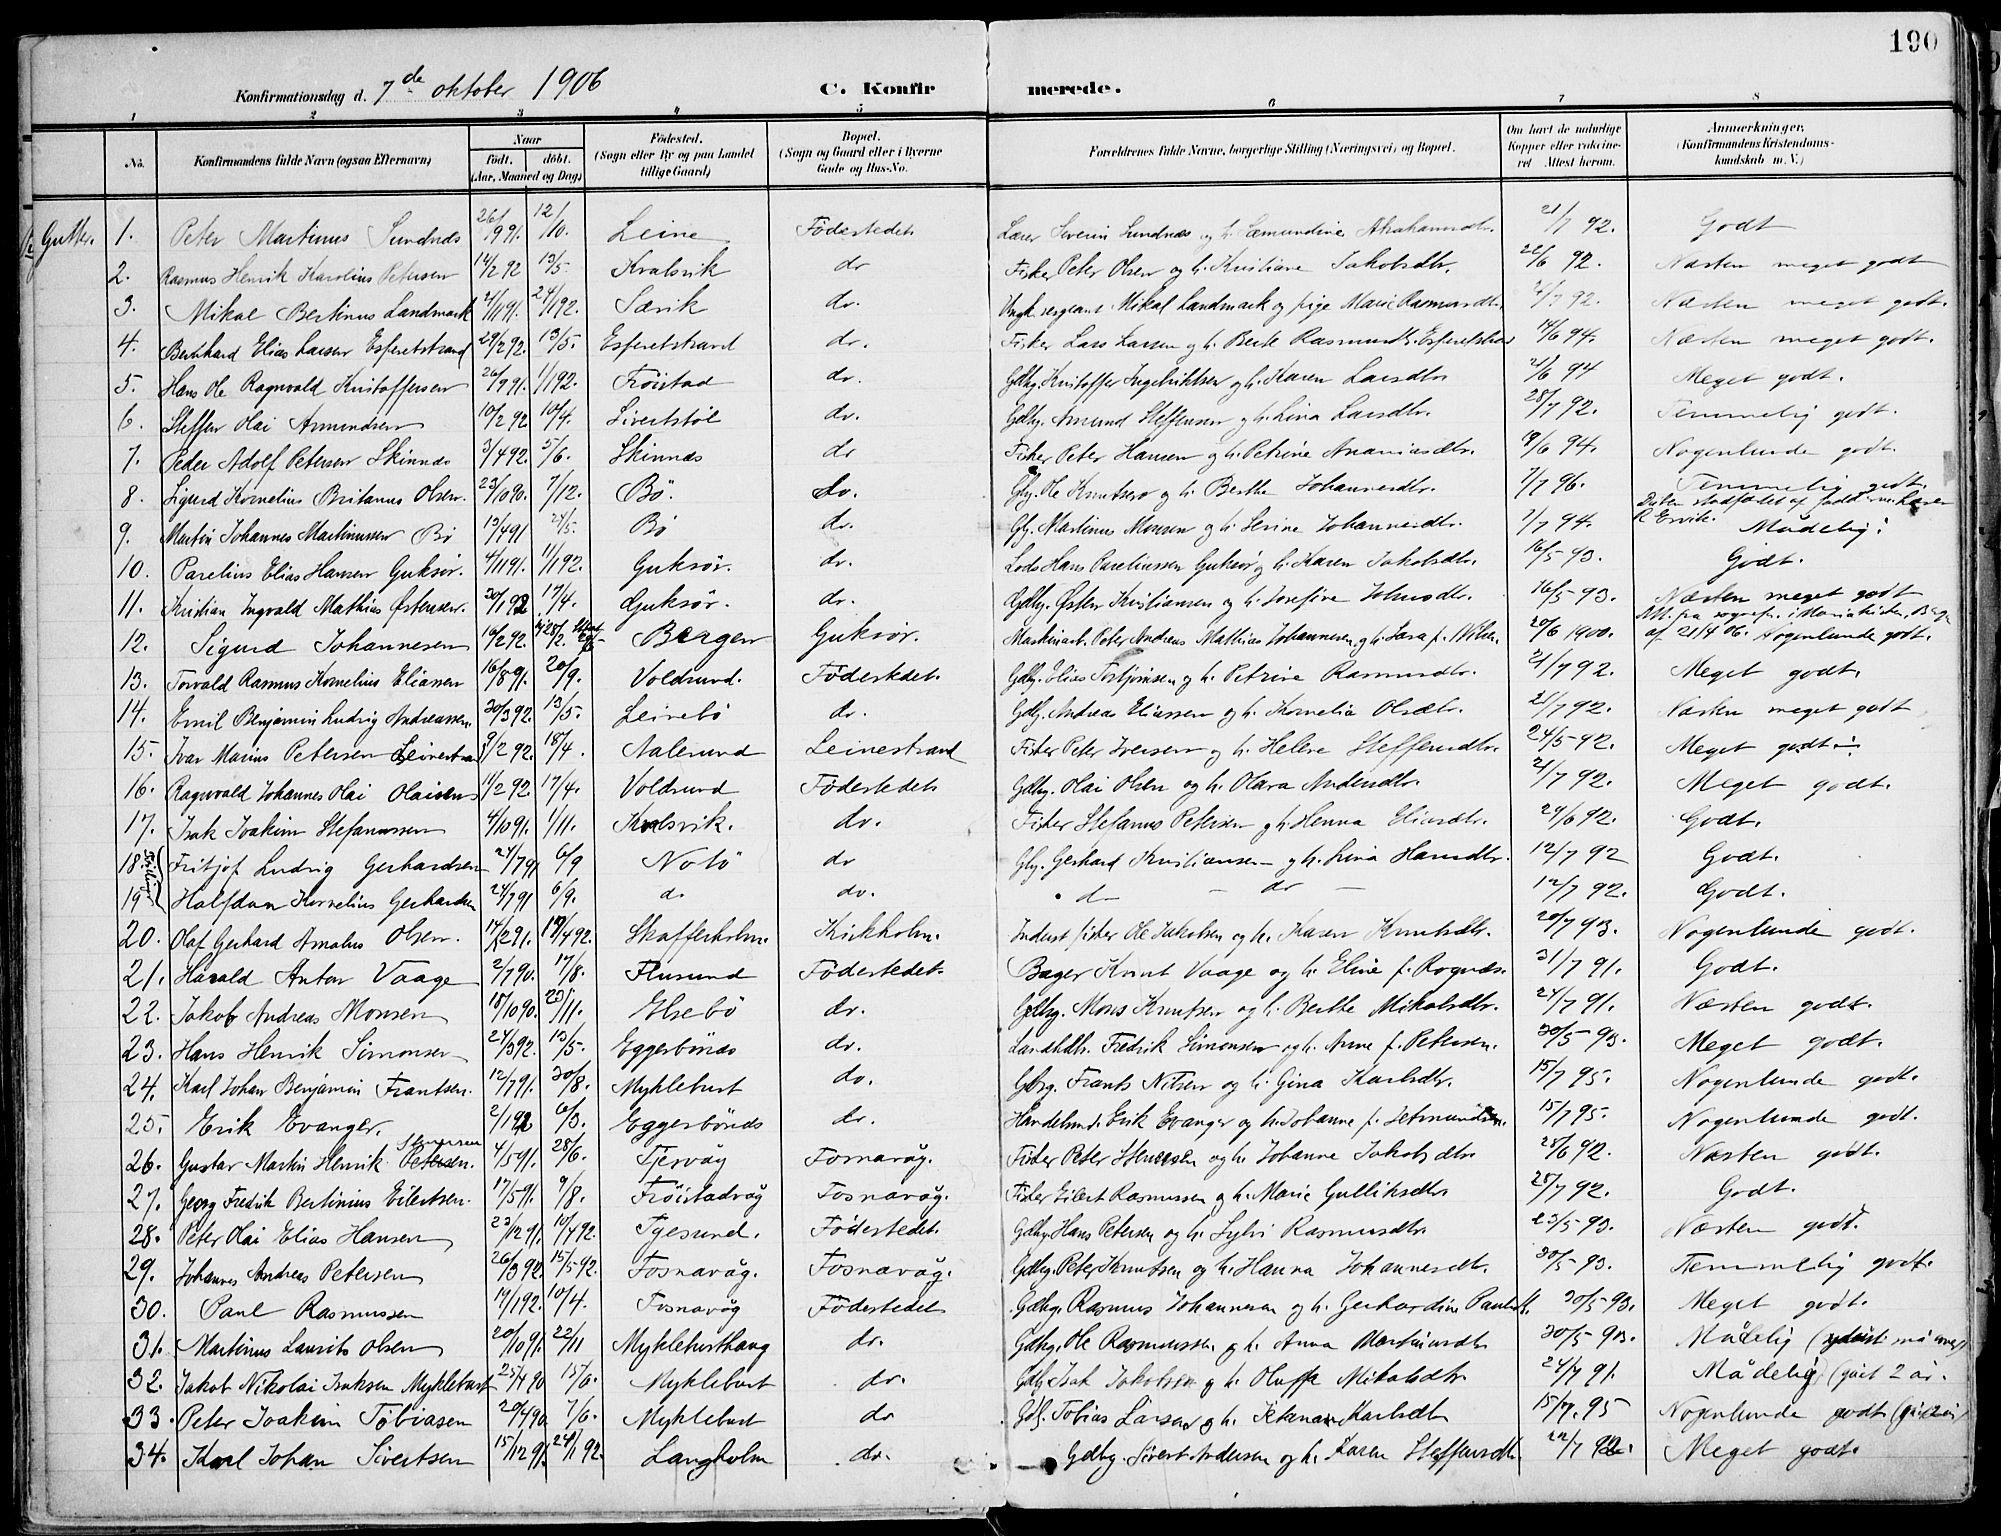 190
Konfirmationsdag d. 7de oktober 1906 C. Konfirmerede.
1 2 3 4 5 6 7 8
No. Konfirmandens fulde Navn (ogsaa Efternavn) Naar födt. döbt. (Aar, Maaned og Dag) Födested. (Sogn eller By og paa Landet tillige Gaard) Bopæl. (Sogn og Gaard eller i Byerne Gade og Hus-No. Forældrenes fulde Navne, borgerlige Stilling (Næringsvei) og Bopæl. Om havt de naturlige Kopper eller vaccineret Attest herom. Anmærkninger. (Konfirmandens Kristendomskundskab m. V.)
Gutter. 1. Peter Martinus Sundnæs 26/9 91. 12/10. Leine Födestedet Lærer Severin Sundnæs og h. Samundine Abrahamsdtr. 21/7 92. Godt
2. Rasmus Henrik Karolius Petersen 14/2 92 13/5. Kvalsvik do Fisker Peter Olsen og h. Kristiane Jakobsdtr. 22/6 92. Næsten meget godt
3. Mikal Bertinus Landmark 21/11 91. 24/1 92. Sævik do. Ungk. sergeant Mikal Landmark og pige Marie Rasmusdtr. 21/7 92. Næsten meget godt.
4. Bernhard Elias Larsen Espesetstrand 29/2 92. 13/5. Espesetstrand do. Fisker Lars Larsen og h. Berte Rasmusdtr. Espesetstrand 14/6 94. Næsten meget godt.
5. Hans Ole Ragnvald Kristoffersen 26/9 91. 1/1 92. Fröistad do. Gdbg. Kristoffer Ingebriktsen og h. Karen Larsdtr 21/6 94 Meget godt.
6. Steffen Olai Amundsen 10/2 92 10/4. Sivertstöl do. Gdbg. Amund Steffensen og h. Lina Larsdtr. 28/7 92. Temmelig godt.
7. Peder Adolf Petersen Skinnes 3/4 92. 5/6. Skinnes do Fisker Peter Hansen og h. Petrine Ananiasdtr. 19/6 94. Nogenlunde godt.
8. Sigurd Kornelius Britanus Olsen. 23/10 90. 7/12. Bö. do. Gbg. Ole Knutsen og h. Berthe Johannesdtr. 1/7 96. Temmelig godt.
9. Martin Johannes Martinussen Bö 13/4 91 24/5. Bö do. Gbg. Martinus Monsen og h. Serine Johannesdtr. 1/7 94. Daben stadfæstet af R. Ervik. Mådelig.
10. Parelius Elias Hansen Guksör. 4/11 91. 1/1 92. Guksör. do. Lods Hans Pareliussen Guksör og h. Karen Jakobsdtr. 16/5 93. Godt.
11. Kristian Ingvald Mathias Östensen. 30/1 92 17/4. Guksör. do. Gdbg. Östen Kristiansen og h. Josefine Johnsdtr. 16/5 93. Næsten meget godt
12. Sigurd Johannesen 16/2 92. 28/2. Bergen Guksör. Maskinarb. Peter Andreas Mathias Johannesen og h. Lara f. Nilsen. 20/6 1900. Att. fra sognepr. i Mariakirken, Bergen af 21/4 06. Nogenlunde godt.
13. Torvald Rasmus Kornelius Eliassen 16/8 91. 20/9. Voldsund. Födestedet. Gdbg. Elias Torbjörnsen og h. Petrine Rasmusdtr. 21/7 92. Meget godt.
14. Emil Benjamin Ludvig Andreassen. 30/3 92. 13/5. Leinebö do. Gdbg. Andreas Eliassen og h. Kornelia Olsdtr. 21/7 92. Næsten meget godt
15. Ivar Marius Petersen Leinestrand 9/2 92. 18/4. Aalesund Leinestrand Fisker Peter Iversen og h. Helene Steffensdtr. 24/5 92. Meget godt.
16. Ragnvald Johannes Olai Olaisen 11/2 92. 17/4. Voldsund Födestedet Gdbg. Olai Olsen og h. Olava Andersdtr. 21/7 92. Meget godt.
17. Isak Joakim Stefanussen 4/10 91. 1/11. Kvalsvik. do. Fisker Stefanus Petersen og h. Henna Eliasdtr. 24/6 92. Godt.
18. Fritjof Ludvig Gerhardsen 24/7 91 6/9 Notö do Gbg. Gerhard Kristiansen og h. Lina Hansdtr. 12/7 92 Godt.
19 Halfdan Kornelius Gerhardsen 24/7 91 6/9. d. do. d - do - 12/7 92. Godt.
Tvilling
20. Olaf Gerhard Amalus Olsen. 14/12 91. 17/4 92. Skafferholm. Kirkholm. Indust. fisker Ole Jakobsen og h. Karen Knutsdtr. 20/7 93. Nogenlunde godt.
21. Harald Anton Vaage 2/7 90. 17/8. Flusund Födestedet. Bager Knut Vaage og h. Eline f. Rognæs. 31/7 91. Godt.
22. Jakob Andreas Monsen 18/10 90. 23/11. Elsebö do. Gdbg. Moses Knutsen og h. Berthe Mikalsdtr. 24/7 91. Næsten godt.
23. Hans Henrik Simonsen 24/3 92. 13/5. Eggesbönes do. Landhdlr. Fredrik Simonsen og h. Anne f. Petersen. 30/5 93. Meget godt.
24. Karl Johan Benjamin Frantsen. 12/7 91. 30/8. Myklebust do. Gbrg. Frants Nilsen og h. Gina Karlsdtr. 15/7 95. Nogenlunde godt.
25. Erik Evanger. 2/1 92 6/3. Eggesbönes do. Handelsmd. Erik Evanger og h. Johanne f. Setmundsen. 15/7 95. Nogenlunde godt.
26. Gustav Martin Henrik Petersen. 4/5 91. 28/6. Tjervåg Fosnavåg. Fisker Peter og h. Johanne Jakobsdtr. 28/6 92. Næsten godt.
27. Georg Fredrik Bertinius Eilertsen. 17/5 91. 9/8. Fröistadvåg Fosnavåg. Fisker Eilert Rasmussen og h. Marie Gulliksdtr. 28/7 92. Godt.
28. Peter Olai Elias Hansen 23/12 91. 10/4 92. Igesund. Födestedet. Gdbg. Hans Petersen og h. Sylvi Rasmusdtr. 23/5 93. Næsten godt.
29. Johannes Andreas Petersen 26/3 92. 15/5 92. Fosnavåg. Fosnavåg. Gdbg. Peter Knutsen og h. Hanna Johannesdtr. 30/5 93. Temmelig godt.
30. Paul Rasmussen 19/1 92. 10/4. Fosnavåg Födestedet Gdbg. Rasmus Johannesen og h. Gerhardine Paulsdtr. 30/5 93. Meget godt.
31. Martinus Laurits Olsen 20/10 91. 22/11 Myklebusthaug do. Gdbg. Ole Rasmussen og h. Anna Martinusdtr 30/5 93. Mådelig
32. Jakob Nikolai Isaksen Myklebust 25/4 90 15/6. Myklebust do. Gdb. Isak Jakobsen og h. Oluffe Mikalsdtr. 24/7 91. Mådelig (gået 2 år.
33. Peter Joakim Tobiasen 20/4 90. 7/6. Myklebust do Gdb. Tobias Larsen og h. Karlsdtr 15/7. 95 Nogenlunde godt (gået 2 år)
34. Karl Johan Sivertsen 15/12 91. 24/1 92. Langholm do. Gdbg. Sivert Andersen og h. Karen Steffensdtr. 22/7 92. Meget godt.